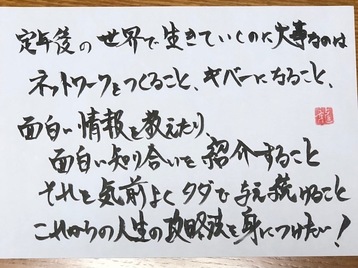 定年後の世界で生きていくのに大事なのは
ネットワークをつくること、ギバーになること、
面白い情報を教えたり、
面白い知り合いを紹介すること
それを気前よくタダで与え続けること
これからの人生の攻略法を身につけたい！